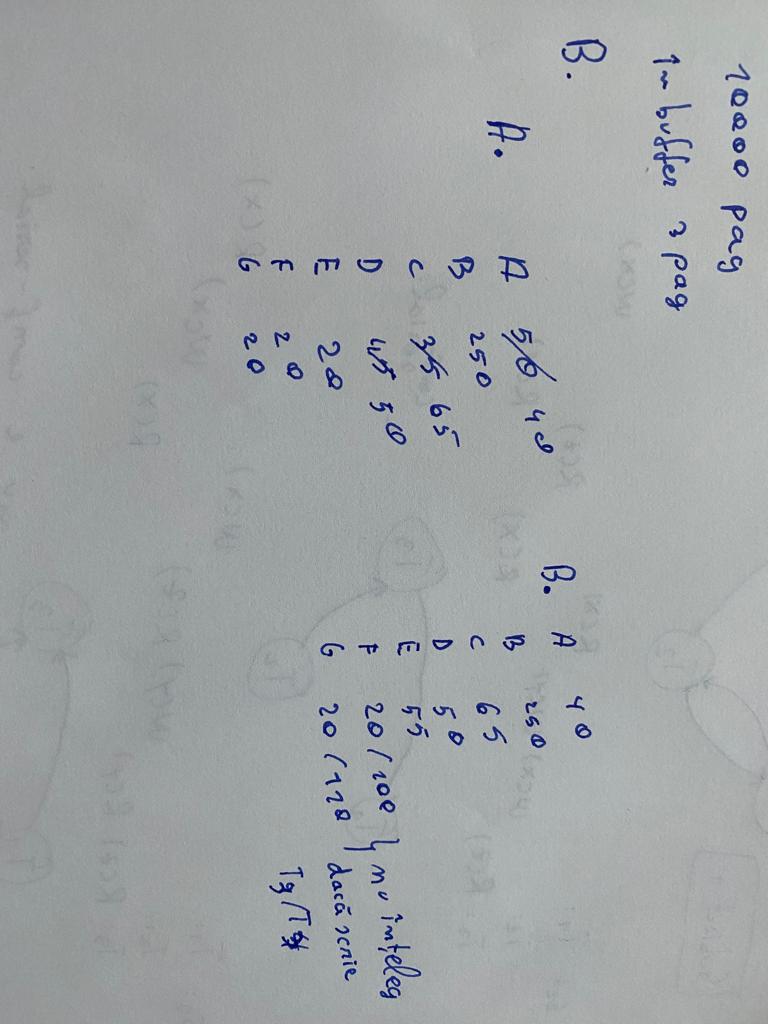 10000 pag
În buffer 3 pag
B.
A.
A 50 40
B 250
C 35 65
D 45 50
E 20
F 20
G 20
B.
A 40
B 250
C 65
D 50
E 55
F 20/100
G 20/120
nu înțeleg
dacă scrie